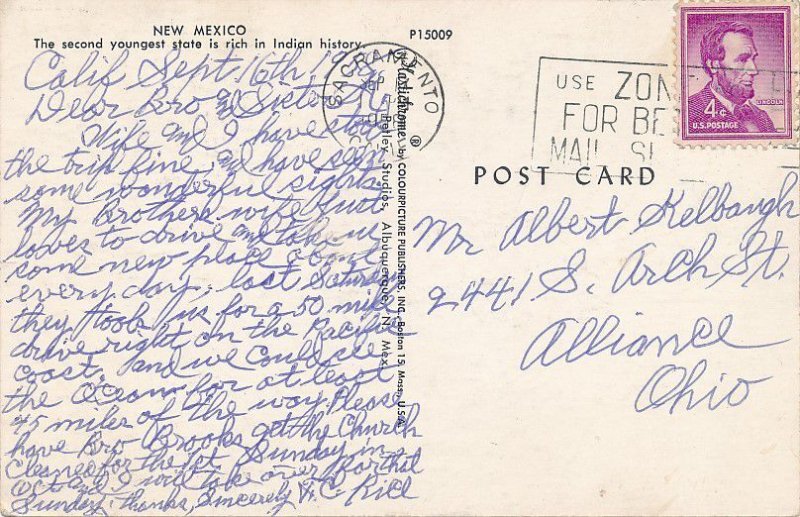 NEW MEXICO
The second youngest state is rich in Indian history.
P15009
Calif Sept. 16th, 19
Dear Bro and Sister K,
Wife and I have stood
the trip fine, and have seen
some wonderful sights.
My Brothers wife just
loves to drive and take us
some new place
every day, last Satur
they took us for a 50 mile
drive right on the Pacific
coast, and we could see
the Ocean for at least
45 miles of the way. Please
have Bro Brooks get the Church
cleaned for the 1st Sunday in
Oct and I will take over for that
Sunday, thanks, Sincerely H. C. Rill
Plastichrome ® by COLOURPICTURE PUBLISHERS, INC., Boston 15, Mass., U.S.A.
Petley Studios, Albuquerque, N. Mex.
SACRAMENTO
USE ZON
FOR BE
MAIL
4¢
LINCOLN
U.S. POSTAGE
POST CARD
Mr Albert Kelbaugh
2441 S. Arch St.
Alliance
Ohio